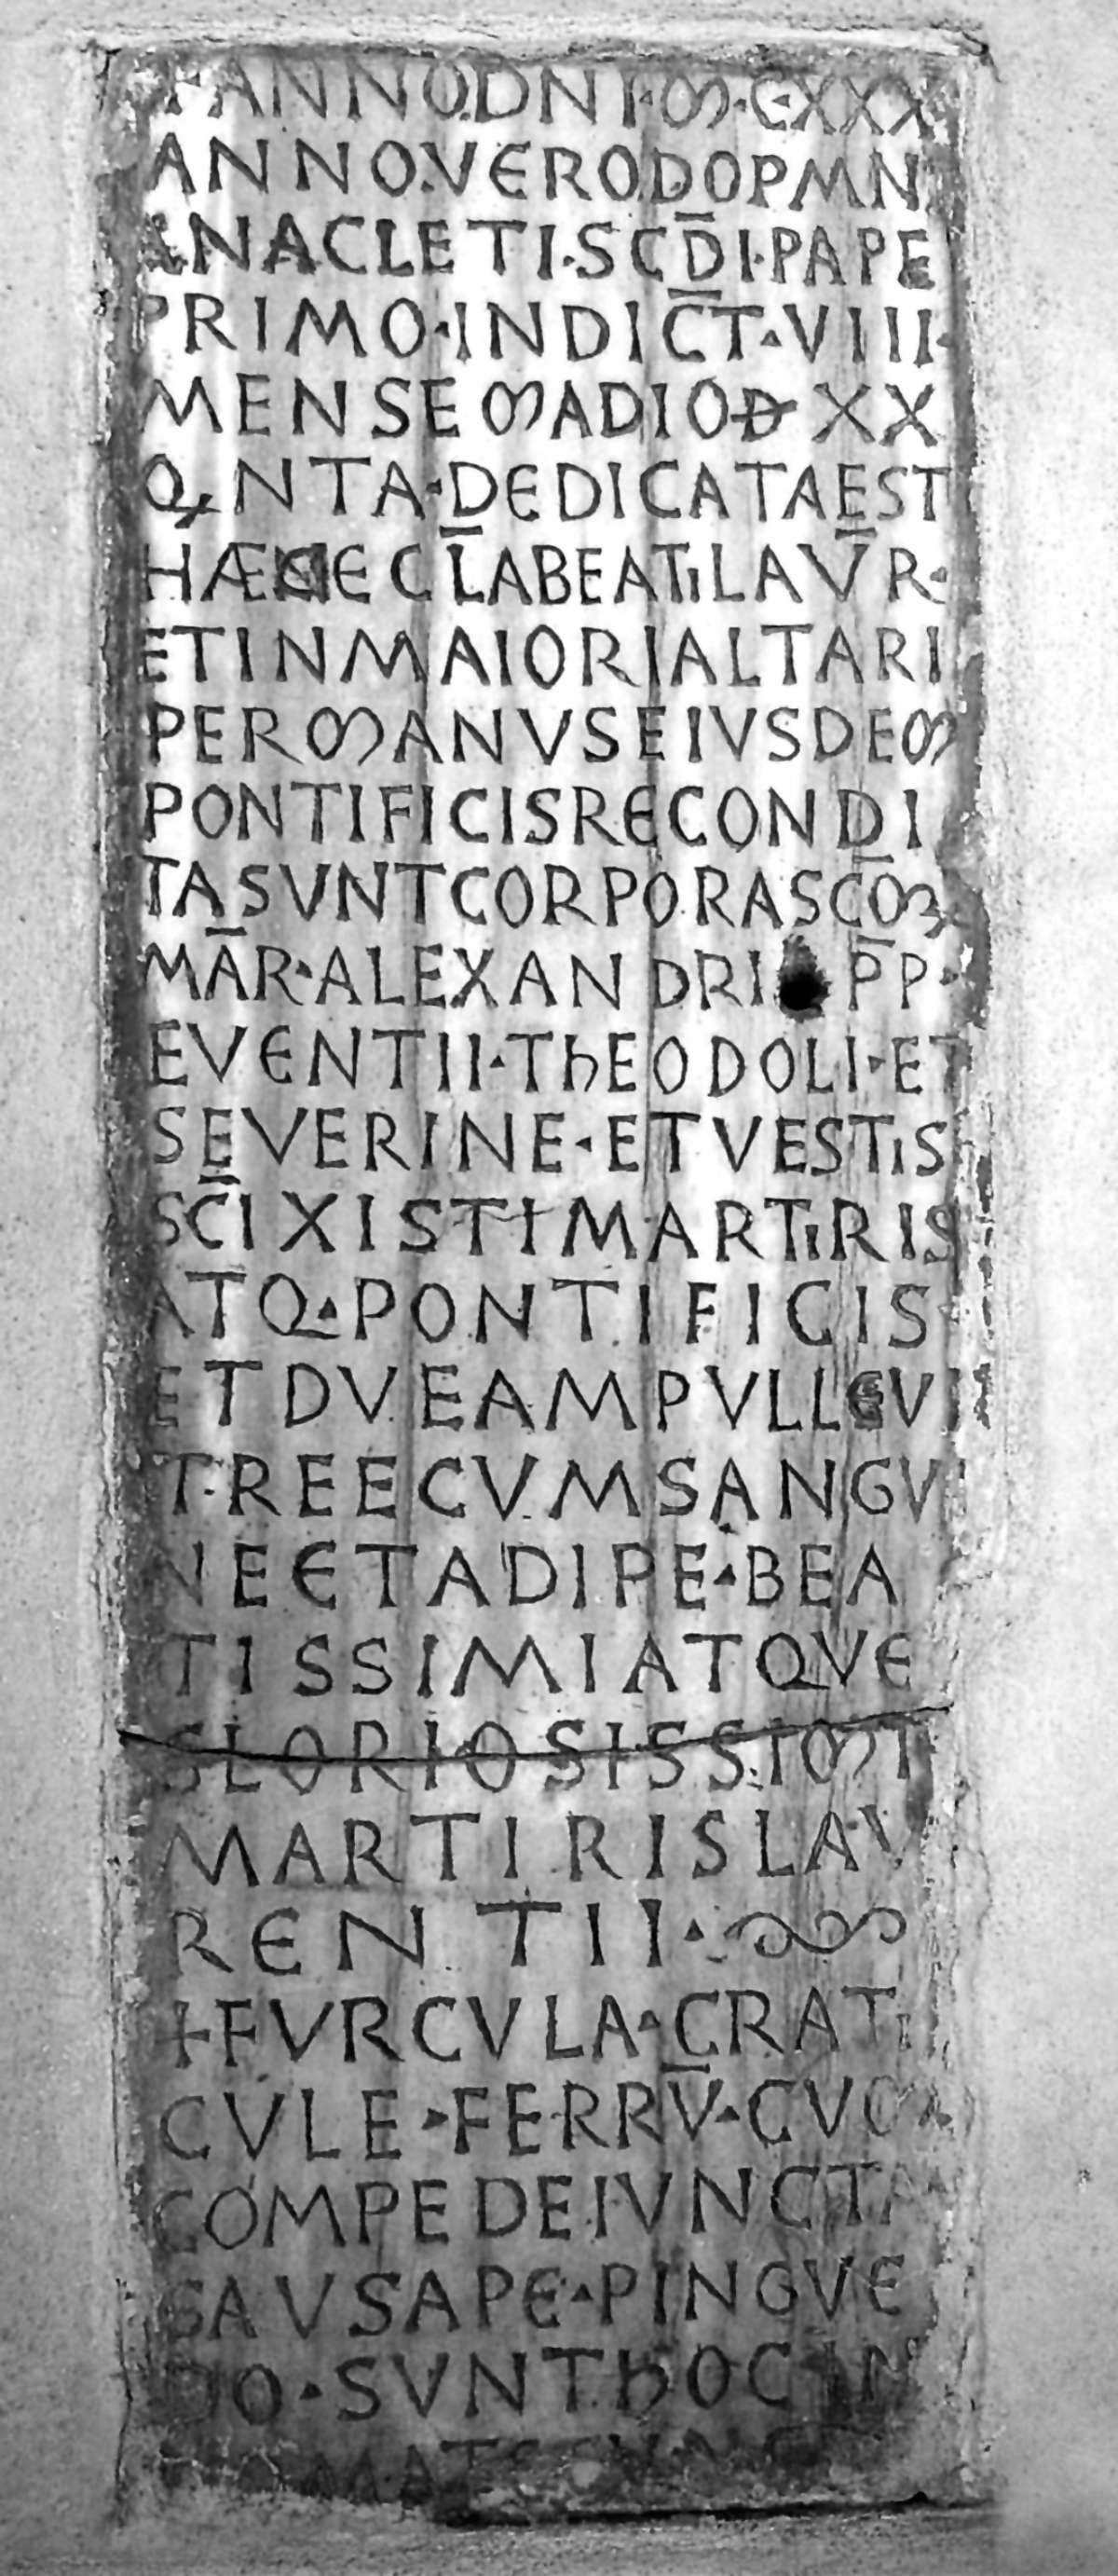 ANNO.DNI.M.CXXX
ANNO.VERO DOPMN
ANACLETI.SCDI.PAPE
PRIMO.INDICT.VIII.
MENSE MADIO Đ XX
QNTA.DEDICATA EST
HÆC ECLA BEATI LAVR.
ET IN MAIORI ALTARI
PER MANVS EIVSDEM
PONTIFICIS RECONDI
TA SVNT CORPORA SCOꝜ
MAR.ALEXANDRI PP.
EVENTII.ThEODOLI.ET
SEVERINE.ET VESTIS
SCI XISTI MARTIRIS
ATQ.PONTIFICIS
ET DVE AMPVLLE VI
TREE CVM SANGVI
NE ET ADIPE.BEA
TISSIMI ATQVE
GLORIOSISSIMI
MARTIRIS LAV
RENTII.
+FVRCVLA.CRATI
CVLE.FERRV.CVM
COMPEDE IVNCTA
SAVSAPE.PINGVE
DO.SVNT hOC IN